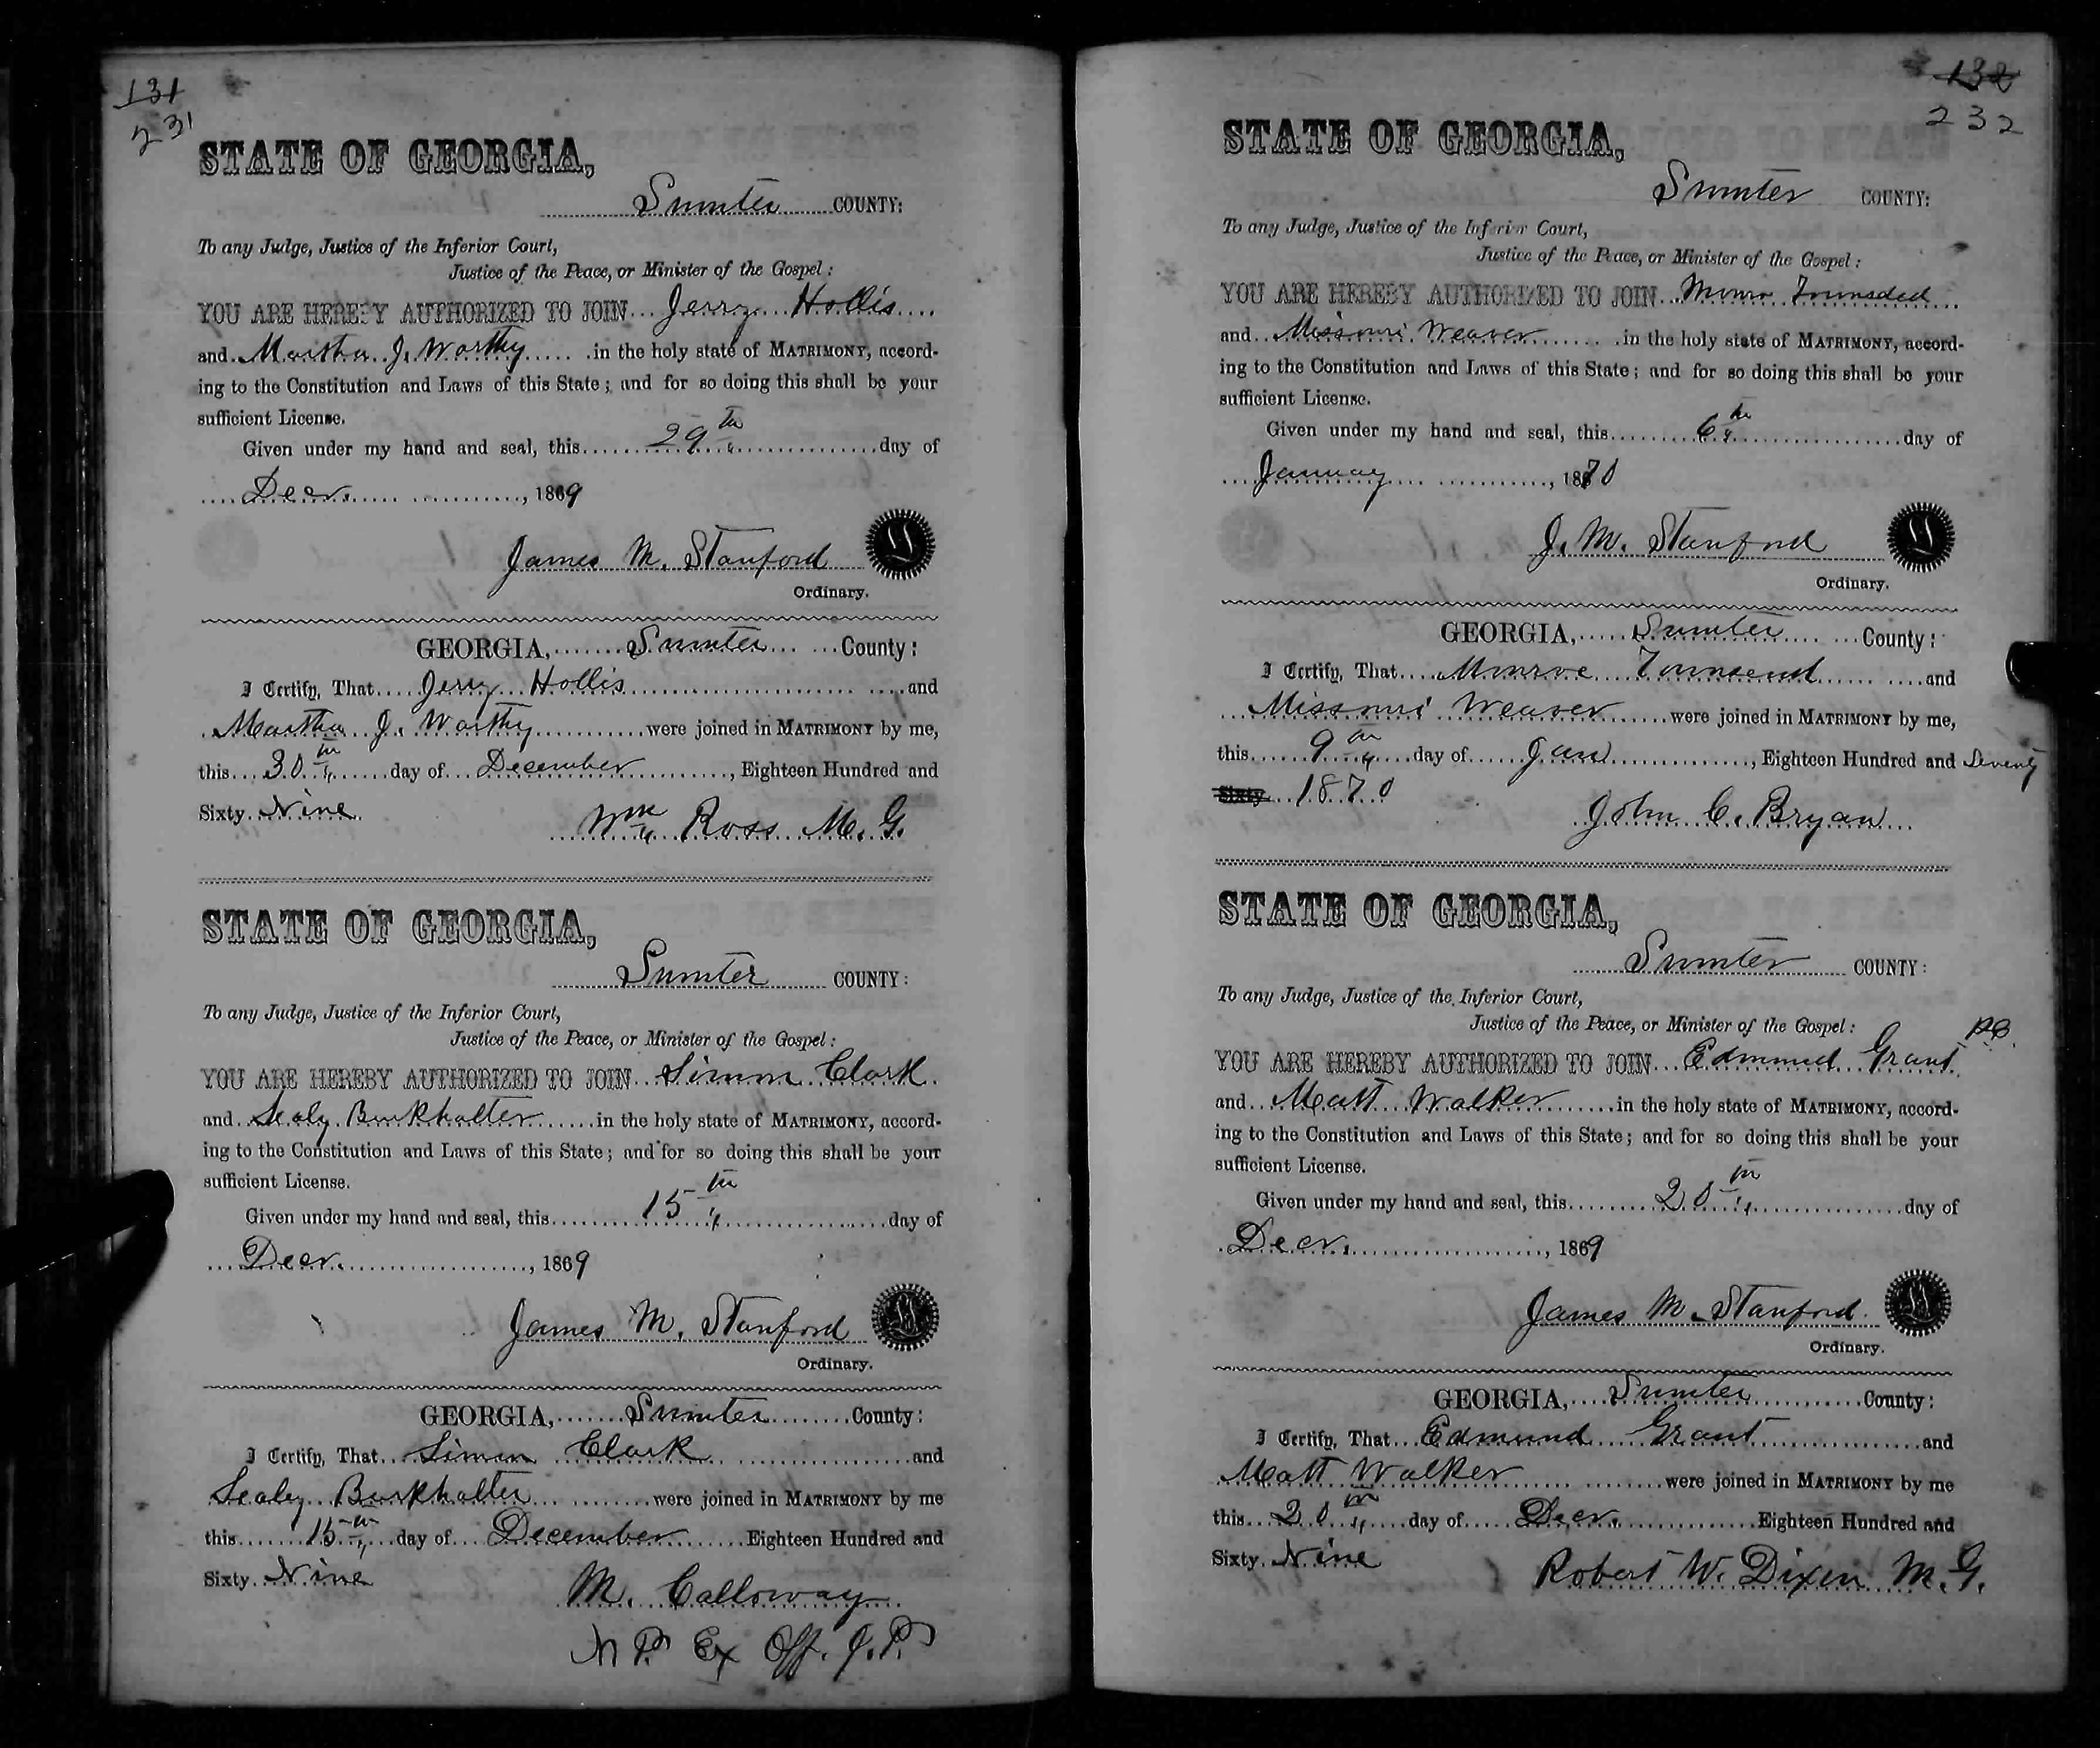 131
231
STATE OF GEORGIA,
Sumter COUNTY:
To any Judge, Justice of the Inferior Court,
Justice of the Peace, or Minister of the Gospel:
YOU ARE HEREBY AUTHORIZED TO JOIN Jerry Hollis
and Martha J. Worthy in the holy state of MATRIMONY, accord-
ing to the Constitution and Laws of this State; and for so doing this shall be your
sufficient License.
Given under my hand and seal, this 29th day of
Decr. , 1869
James M. Stanford
Ordinary.
GEORGIA, Sumter County:
I Certify, That Jerry Hollis and
Martha J. Worthy were joined in MATRIMONY by me,
this 30th day of December , Eighteen Hundred and
Sixty Nine
Wm Ross M. G.
STATE OF GEORGIA,
Sumter COUNTY:
To any Judge, Justice of the Inferior Court,
Justice of the Peace, or Minister of the Gospel:
YOU ARE HEREBY AUTHORIZED TO JOIN Simon Clark
and Sealy Burkhalter in the holy state of MATRIMONY, accord-
ing to the Constitution and Laws of this State; and for so doing this shall be your
sufficient License.
Given under my hand and seal, this 15th day of
Decr. , 1869
James M. Stanford
Ordinary.
GEORGIA, Sumter County:
I Certify, That Simon Clark and
Sealey Burkhalter were joined in MATRIMONY by me
this 15th day of December Eighteen Hundred and
Sixty Nine
M. Calloway
N P. Ex Off. J. P.
132
232
STATE OF GEORGIA,
Sumter COUNTY:
To any Judge, Justice of the Inferior Court,
Justice of the Peace, or Minister of the Gospel:
YOU ARE HEREBY AUTHORIZED TO JOIN Munro Townsded
and Missouri Weaver in the holy state of MATRIMONY, accord-
ing to the Constitution and Laws of this State; and for so doing this shall be your
sufficient License.
Given under my hand and seal, this 6th day of
January , 1870
J. M. Stanford
Ordinary.
GEORGIA, Sumter County:
I Certify, That Munroe Townsend and
Missouri Weaver were joined in MATRIMONY by me,
this 9th day of Jan , Eighteen Hundred and Seventy
Sixty 1870
John C. Bryan
STATE OF GEORGIA,
Sumter COUNTY:
To any Judge, Justice of the Inferior Court,
Justice of the Peace, or Minister of the Gospel:
YOU ARE HEREBY AUTHORIZED TO JOIN Edmund Grant
and Matt Walker in the holy state of MATRIMONY, accord-
ing to the Constitution and Laws of this State; and for so doing this shall be your
sufficient License.
Given under my hand and seal, this 20th day of
Decr. , 1869
James M. Stanford
Ordinary.
GEORGIA, Sumter County:
I Certify, That Edmund Grant and
Matt Walker were joined in MATRIMONY by me
this 20th day of Decr. Eighteen Hundred and
Sixty Nine
Robert W. Dixon M. G.